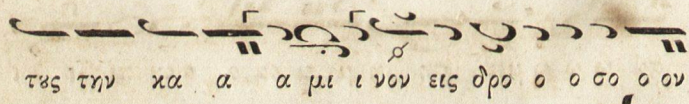 τȣς την κα α α μι ι νον εις δρο ο ο σο ο ον